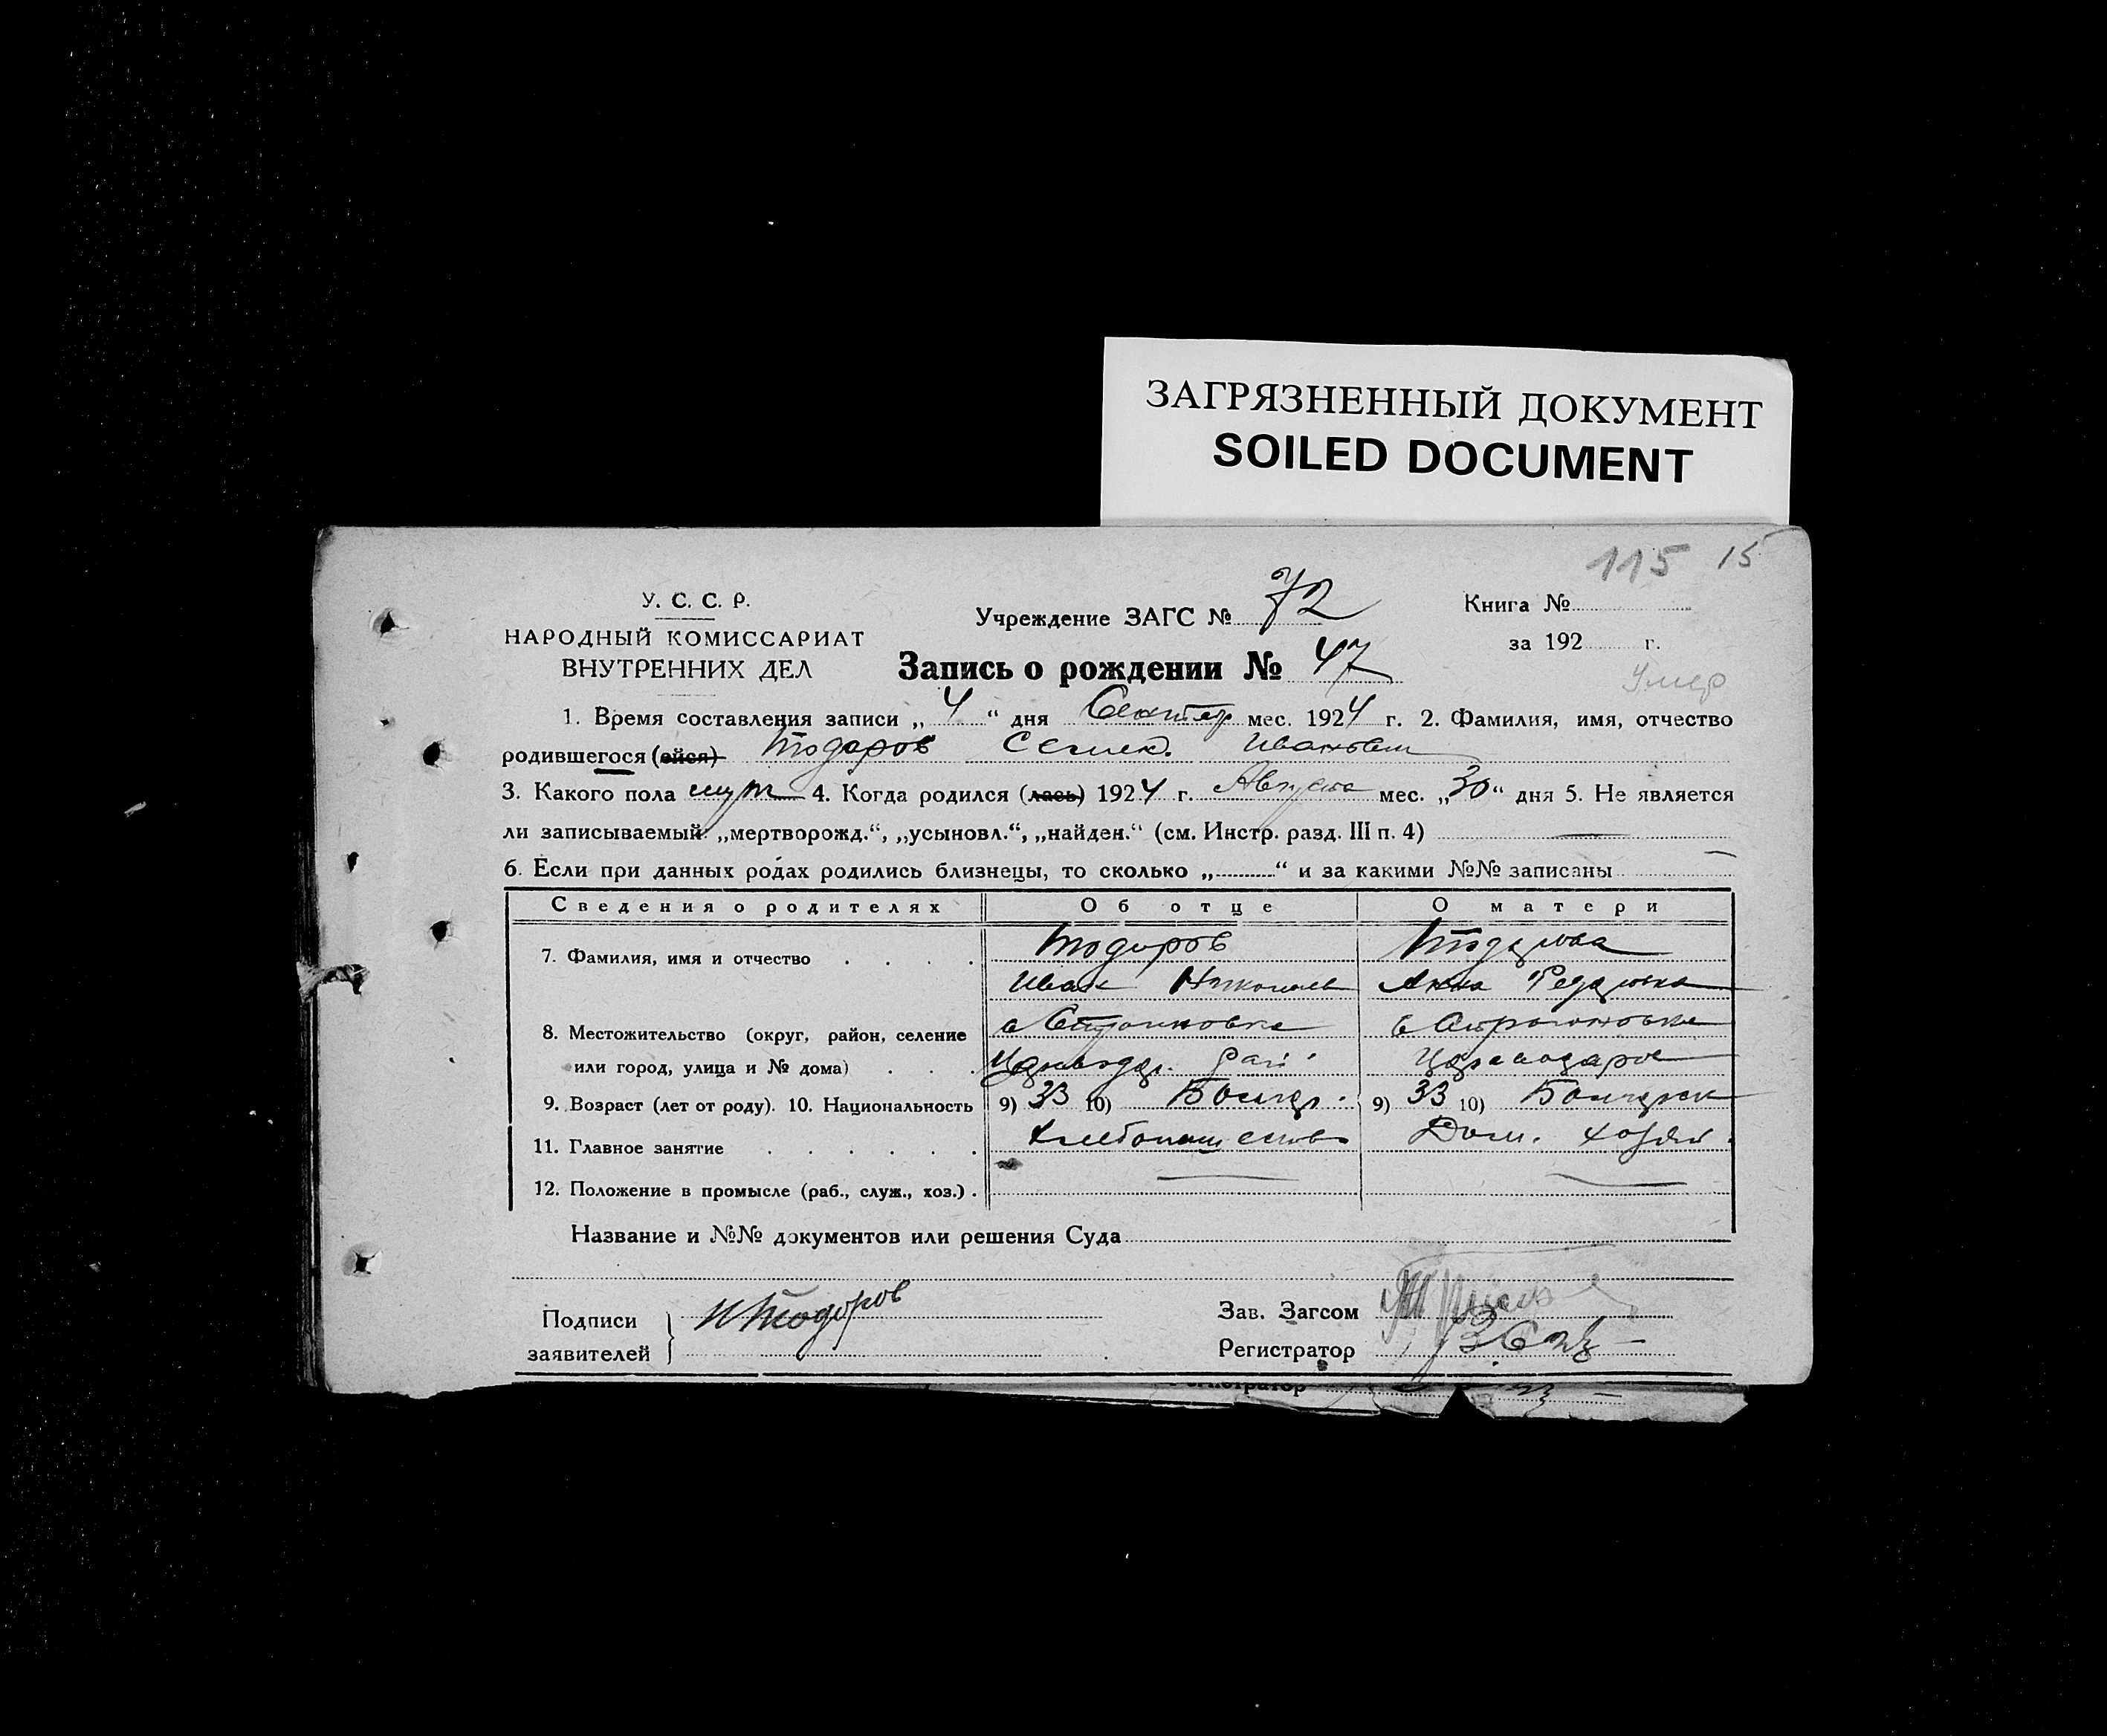 ЗАГРЯЗНЕННЫЙ ДОКУМЕНТ
SOILED DOCUMENT
115 15
У. С. С. Р.
НАРОДНЫЙ КОМИССАРИАТ
ВНУТРЕННИХ ДЕЛ
Учреждение ЗАГС № 72
Запись о рождении № 47
Книга №
за 192 г.
Умер
1. Время составления записи „ 4 “ дня Сентябр мес. 1924 г. 2. Фамилия, имя, отчество
родившегося (ейся) Тодоров Семен. Иванович
3. Какого пола муж 4. Когда родился (лась) 1924 г. Августа мес. „30“ дня 5. Не является
ли записываемый: „мертворожд.“, „усыновл.“, „найден.“ (см. Инстр. разд. III п. 4)
6. Если при данных родах родились близнецы, то сколько „ “ и за какими №№ записаны
Сведения о родителях Об отце О матери
7. Фамилия, имя и отчество Тодоров Тодорова
Иван Николаев Анна
8. Местожительство (округ, район, селение
или город, улица и № дома)
9. Возраст (лет от роду). 10. Национальность 9) 33 10) Болгар. 9) 33 10) Болгарск
11. Главное занятие Хлебопашество Дом. хозяй.
12. Положение в промысле (раб., служ., хоз.)
Название и №№ документов или решения Суда
Подписи
заявителей И Тодоров
Зав. Загсом
Регистратор
Регистратор